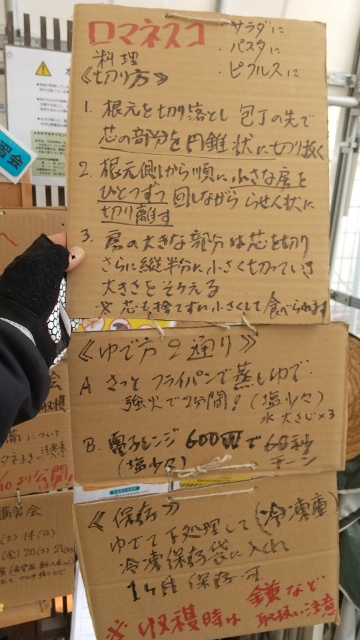 ロマネスコ
・サラダに
・パスタに
・ピクルスに
料理
《切り方》
1. 根元を切り落とし 包丁の先で
芯の部分を円錐状に切り抜く
2. 根元側から順に小さな房を
ひとつずつ 回しながら らせん状に
切り離す
3. 房の大きな部分は芯を切り
さらに縦半分に小さく切っていき
大きさをそろえる
※ 芯も捨てずに小さくして食べられます
《ゆで方 2通り》
A さっと フライパンで蒸しゆで
強火で2分間! (塩少々)
水 大さじ×3
B. 電子レンジ 600Wで 60秒
(塩少々) チーン
《保存》
ゆでて下処理して (冷凍庫)
冷凍保存袋に入れ
保存可
※ 収穫時は 鎌など
取扱い注意
習会
収穫
について
より公開
講習会